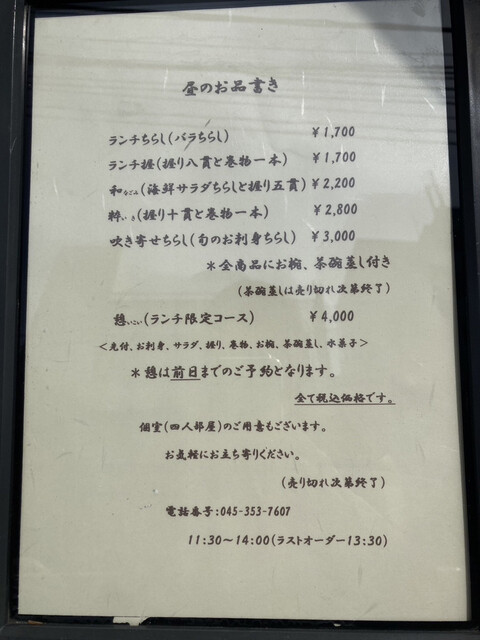 昼のお品書き
ランチちらし(バラちらし) ¥1,700
ランチ握(握り八貫と巻物一本) ¥1,700
和なごみ(海鮮サラダちらしと握り五貫) ¥2,200
粋いき(握り十貫と巻物一本) ¥2,800
吹き寄せちらし(旬のお刺身ちらし) ¥3,000
*全商品にお椀、茶碗蒸し付き
(茶碗蒸しは売り切れ次第終了)
憩いこい(ランチ限定コース) ¥4,000
<先付、お刺身、サラダ、握り、巻物、お椀、茶碗蒸し、水菓子>
*憩は前日までのご予約となります。
全て税込価格です。
個室(四人部屋)のご用意もございます。
お気軽にお立ち寄りください。
(売り切れ次第終了)
電話番号:045-353-7607
11:30~14:00(ラストオーダー13:30)